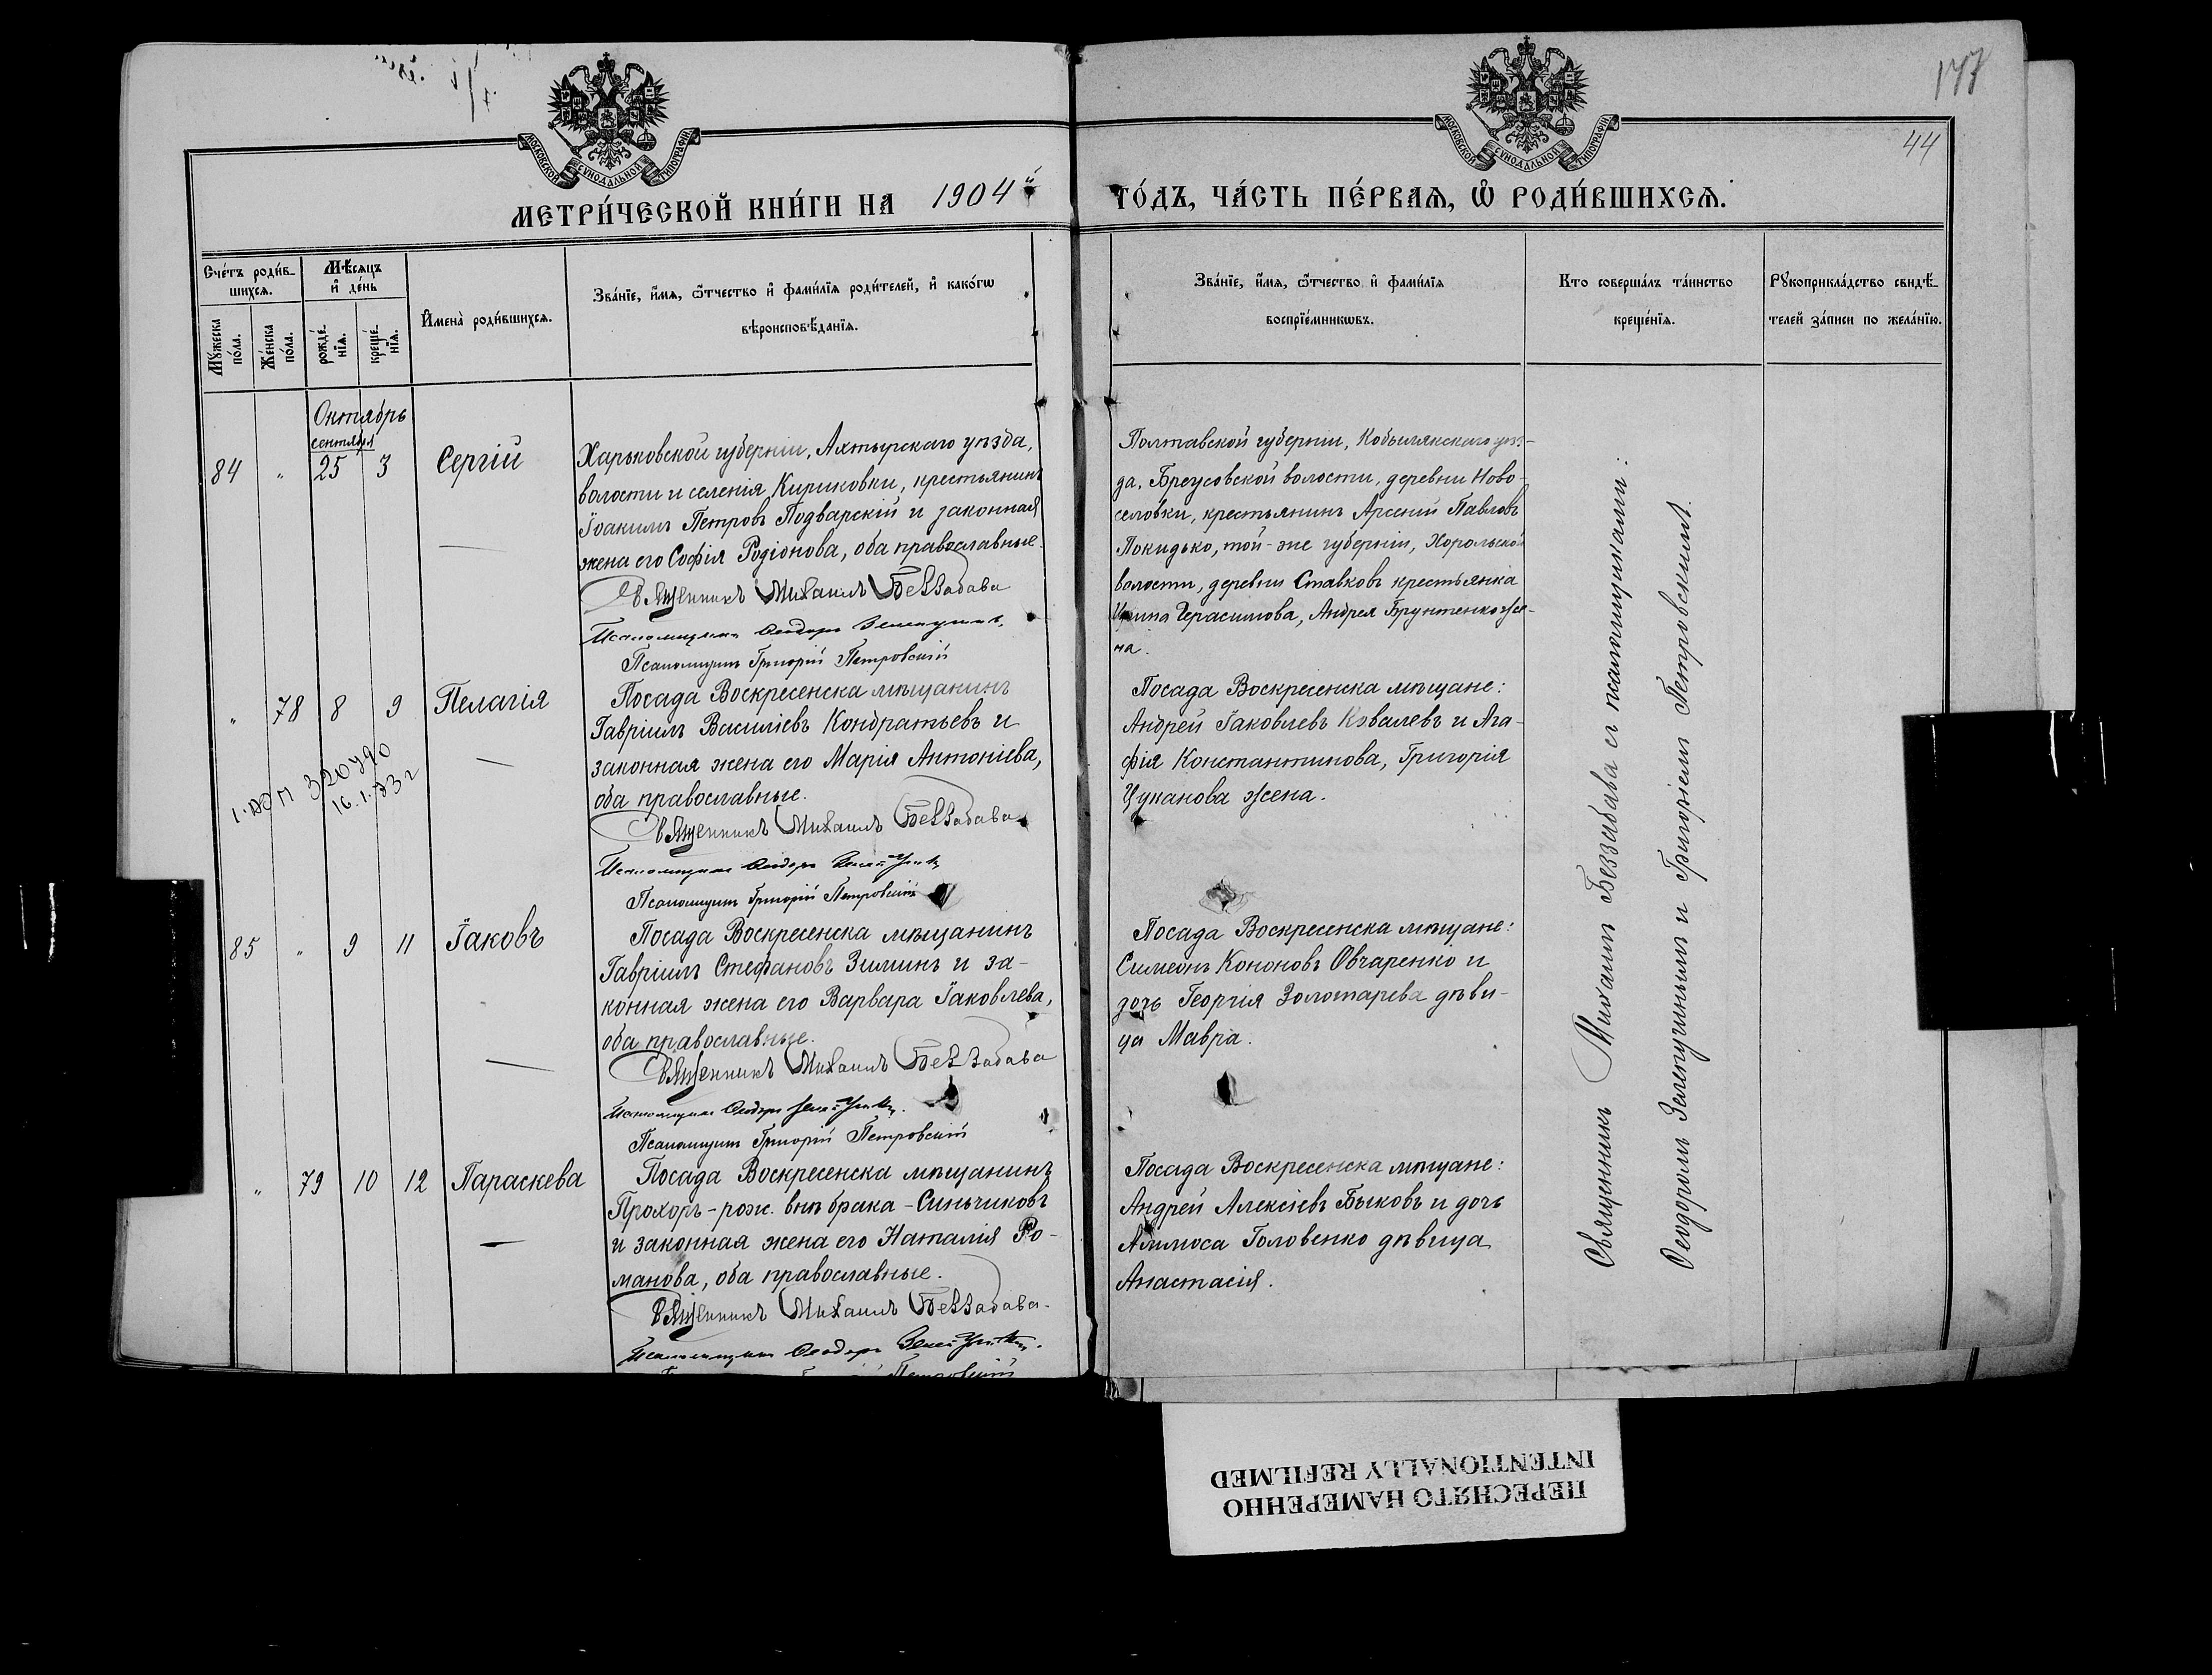 177
44
МОСКОВСКОЙ СѴНОДАЛЬНОЙ ТИПОГРАФІИ
МОСКОВСКОЙ СѴНОДАЛЬНОЙ ТИПОГРАФІИ
МЕТРИ́ЧЕСКОЙ КНИ́ГИ НА 1904й ГО́ДЪ, ЧА́СТЬ ПЕ́РВАѦ, Ѡ҆ РОДИ́ВШИХСѦ.
Сче́тъ роди́в-
шихсѧ.
Мꙋ́жеска
по́ла.
Же́нска
по́ла.
Мѣ́сѧцъ
и҆ де́нь
рожде́-
нїѧ.
креще́-
нїѧ.
И҆мена̀ роди́вшихсѧ.
Зва́нїе, и҆́мѧ, ѻ҆́тчество и҆ фами́лїѧ роди́телей, и҆ како́гѡ
вѣроисповѣ́данїѧ.
Зва́нїе, и҆́мѧ, ѻ҆́тчество и҆ фами́лїѧ
воспрїе́мникѡвъ.
Кто соверша́лъ та́инство
креще́нїѧ.
Рꙋкоприкла́дство свидѣ́-
телей за́писи по жела́нїю.
Октябрь
сентября
84 " 25 3 Сергій
Харьковской губерніи, Ахтырскаго уѣзда,
волости и селенія Кириковки, крестьянинъ
Іоакимъ Петровъ Подварскій и законная
жена его Софія Родіонова, оба православные.
Священникъ Михаилъ Беззабава
Псаломщикъ Ѳеодоръ Зеленучинъ
Псаломщикъ Григорій Петровскій
Полтавской губерніи, Кобылякскаго уѣз-
да, Бреусовской волости, деревни Ново-
селовки, крестьянинъ Арсеній Павловъ
Покидько, той-же губерніи, Хорольской
волости, деревни Ставковъ крестьянка
Ирина Герасимова, Андрея Брунтенко же-
на.
" 78 8 9 Пелагія
I. 320490
16.1.73г
Посада Воскресенска мѣщанинъ
Гавріилъ Василіевъ Кондратьевъ и
законная жена его Марія Антоніева,
оба православные.
Священникъ Михаилъ Беззабава
Псаломщикъ Ѳеодоръ
Псаломщикъ Григорій Петровскій
Посада Воскресенска мѣщане:
Андрей Іаковлевъ Ковалевъ и Ага-
фія Константинова, Григорія
Цуканова жена.
85 " 9 11 Іаковъ
Посада Воскресенска мѣщанинъ
Гавріилъ Стефановъ Зиминъ и за-
конная жена его Варвара Іаковлева,
оба православные.
Священникъ Михаилъ Беззабава
Псаломщикъ Ѳеодоръ
Псаломщикъ Григорій Петровскій
Посада Воскресенска мѣщане:
Симеонъ Кононовъ Овчаренко и
дочь Георгія Золотарева дѣви-
ца Мавра.
" 79 10 12 Параскева
Посада Воскресенска мѣщанинъ
Прохоръ-рож. внѣ брака-Синьчиковъ
и законная жена его Наталія Ро-
манова, оба православные.
Священникъ Михаилъ Беззабава.
Псаломщикъ Ѳеодоръ
Петровскій
Посада Воскресенска мѣщане:
Андрей Алексіевъ Быковъ и дочь
Алимоса Головенко дѣвица
Анастасія.
Священникъ Михаилъ Беззабава съ псаломщиками:
Ѳеодоромъ и Григоріемъ Петровскимъ.
ПЕРЕСНЯТО НАМЕРЕННО
INTENTIONALLY REFILMED